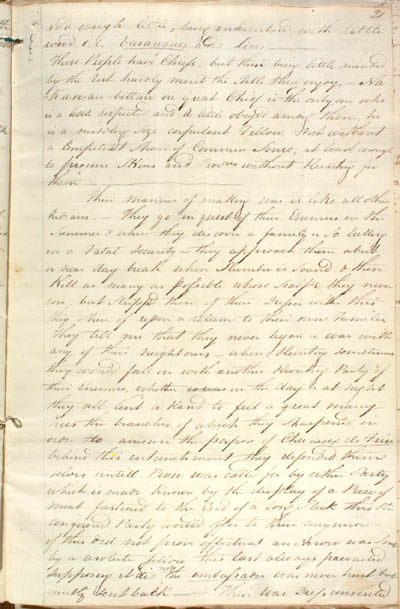 21
and weigh little, being encumbered with little
wood &c.
These People have Chiefs, but these being little minded
by the Rest hardly merit the Title they enjoy. - Na
or great Chief is the only one who
is a little respected and a little obeyed among them, he
is a middling Size corpulent Fellow, not without
a Competent Share of Common Sense, at least enough
to procure Skins and without Hunting for
them
Their manner of making war is like all other
Indians. - They go in quest of their Enemies in the
Summer & when they discover a family or so lulled
in a Fatal Security - they approach them about
or near day break when Slumber is sound & then
Kill as many as possible whose Scalps they never
, but Stripp'd them of their Dresses with this
they upon a return to their own Families
They tell me that they never began a war with
any of their Neighbours - when Hunting sometimes
they would fall in with another Hunting Party of
their Enemies, whether in the day or at night
they all lent a Hand to fell a great many
trees the branches of which they sharpened in
order to answer the purpose of Chevaux de Frise
behind this entrenchment they defended them
selves untill Peace was called for by either Party
which is made known by the display of a Piece of
meat fastened to the End of a long Stick this the
conquered Party would offer to their conquerors
if this did not prove effectual an Arrow was sent
by a resolute fellow this last always prevailed
supposing it did not the embassador was never hurt but
sent back - Their was Dresses consisted